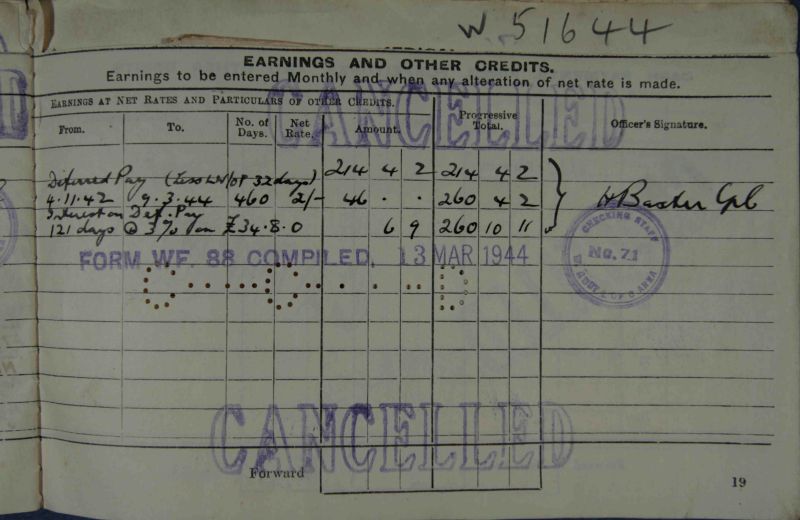 W 51644
EARNINGS AND OTHER CREDITS.
Earnings to be entered Monthly and when any alteration of net rate is made.
EARNINGS AT NET RATES AND PARTICULARS OF OTHER CREDITS.
From. To. No. of Days. Net Rate. Amount. Progressive Total. Officer's Signature.
CANCELLED
214 4 2 214 4 2
Deferred Pay (Less 32 days)
4.11.42 9.3.44 460 2/- 46 . . 260 4 2 H Baxter Cpl
Interest on Def. Pay
121 days @ 3% on £34.8.0 6 9 260 10 11
CHECKING STAFF
No. 71
FORM WF. 88 COMPILED, 13 MAR 1944
CANCELLED
Forward
19